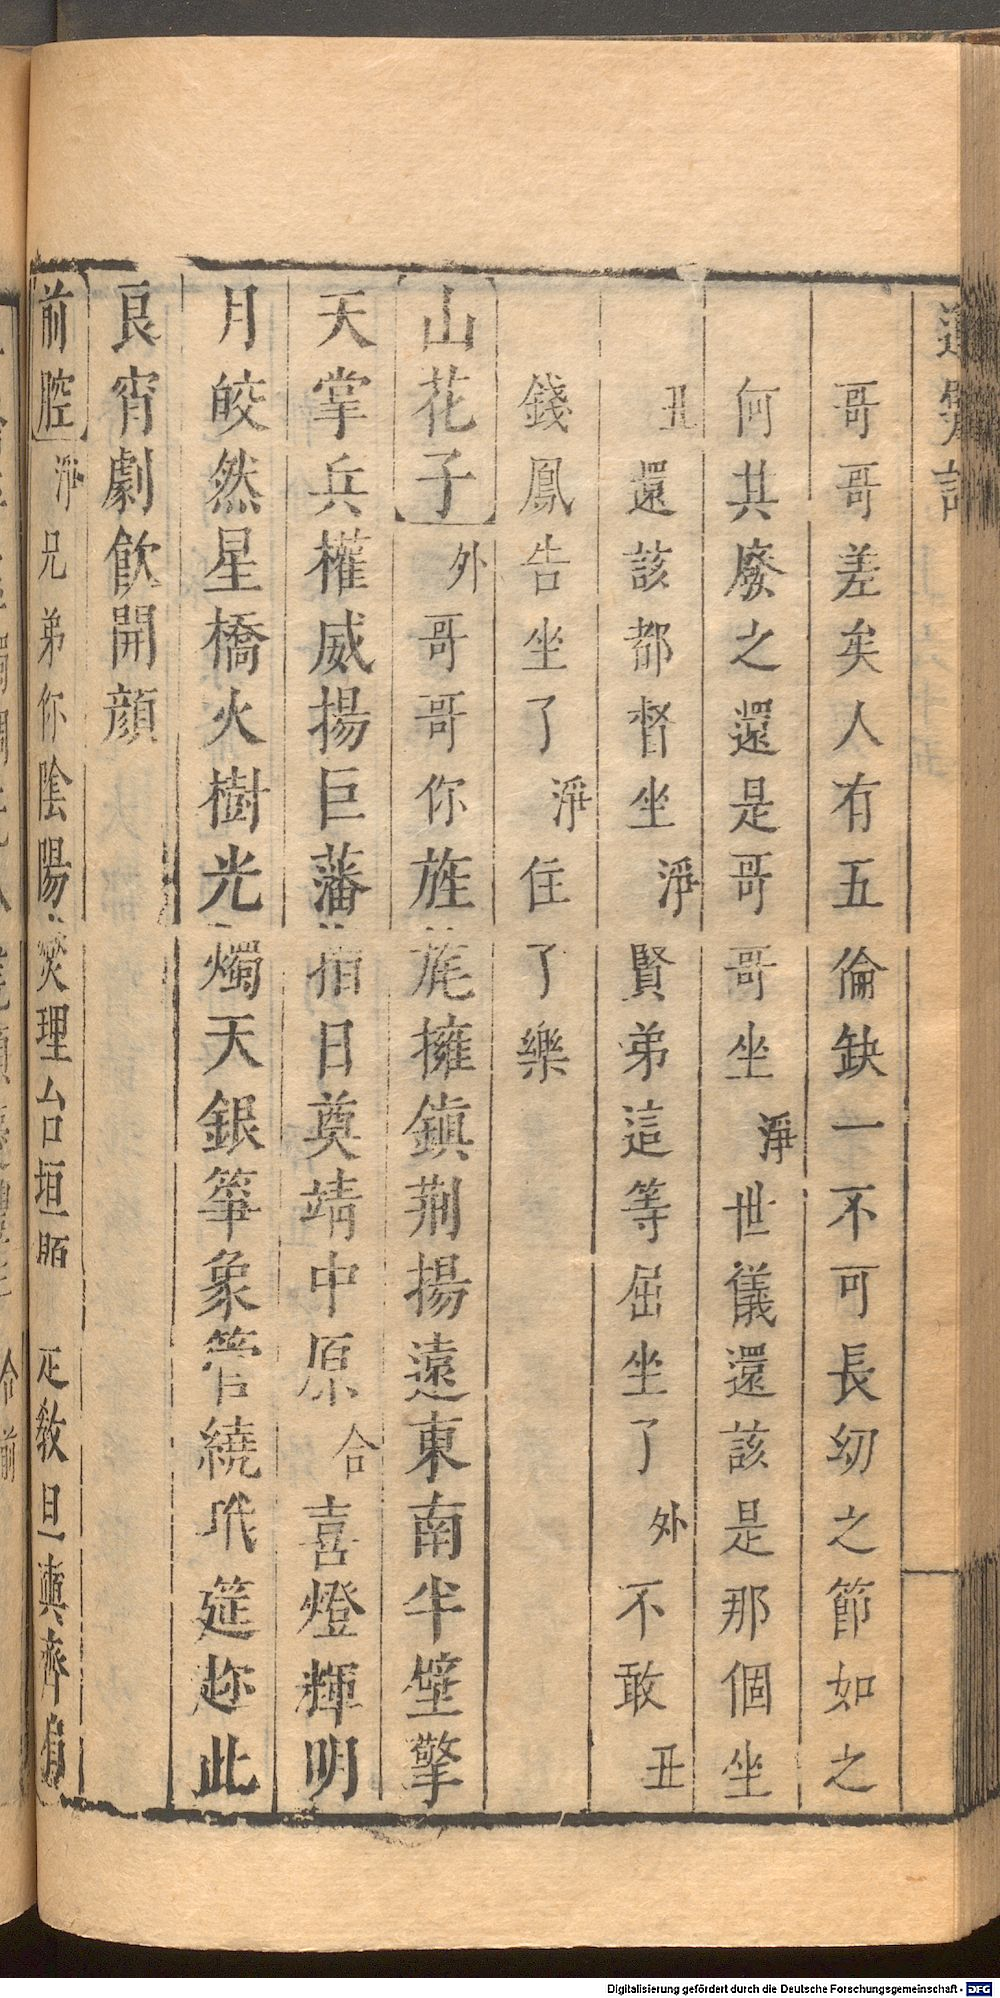 運甓記
哥哥差矣人有五倫缺一不可長幼之節如之
何其廢之還是哥哥坐淨世儀還該是那個坐
丑還該都督坐淨賢弟這等屈坐了外不敢丑
錢鳳告坐了淨住了樂
山花子外哥哥你旌旄擁鎮荊揚遠東南半壁擎
天掌兵權威揚巨藩指日奠靖中原合喜燈輝明
月皎然星橋火樹光燭天銀箏象管繞玳筵趂此
良宵劇飲開顏
前腔淨兄弟你陰陽燮理台垣
Digitalisierung gefördert durch die Deutsche Forschungsgemeinschaft - DFG